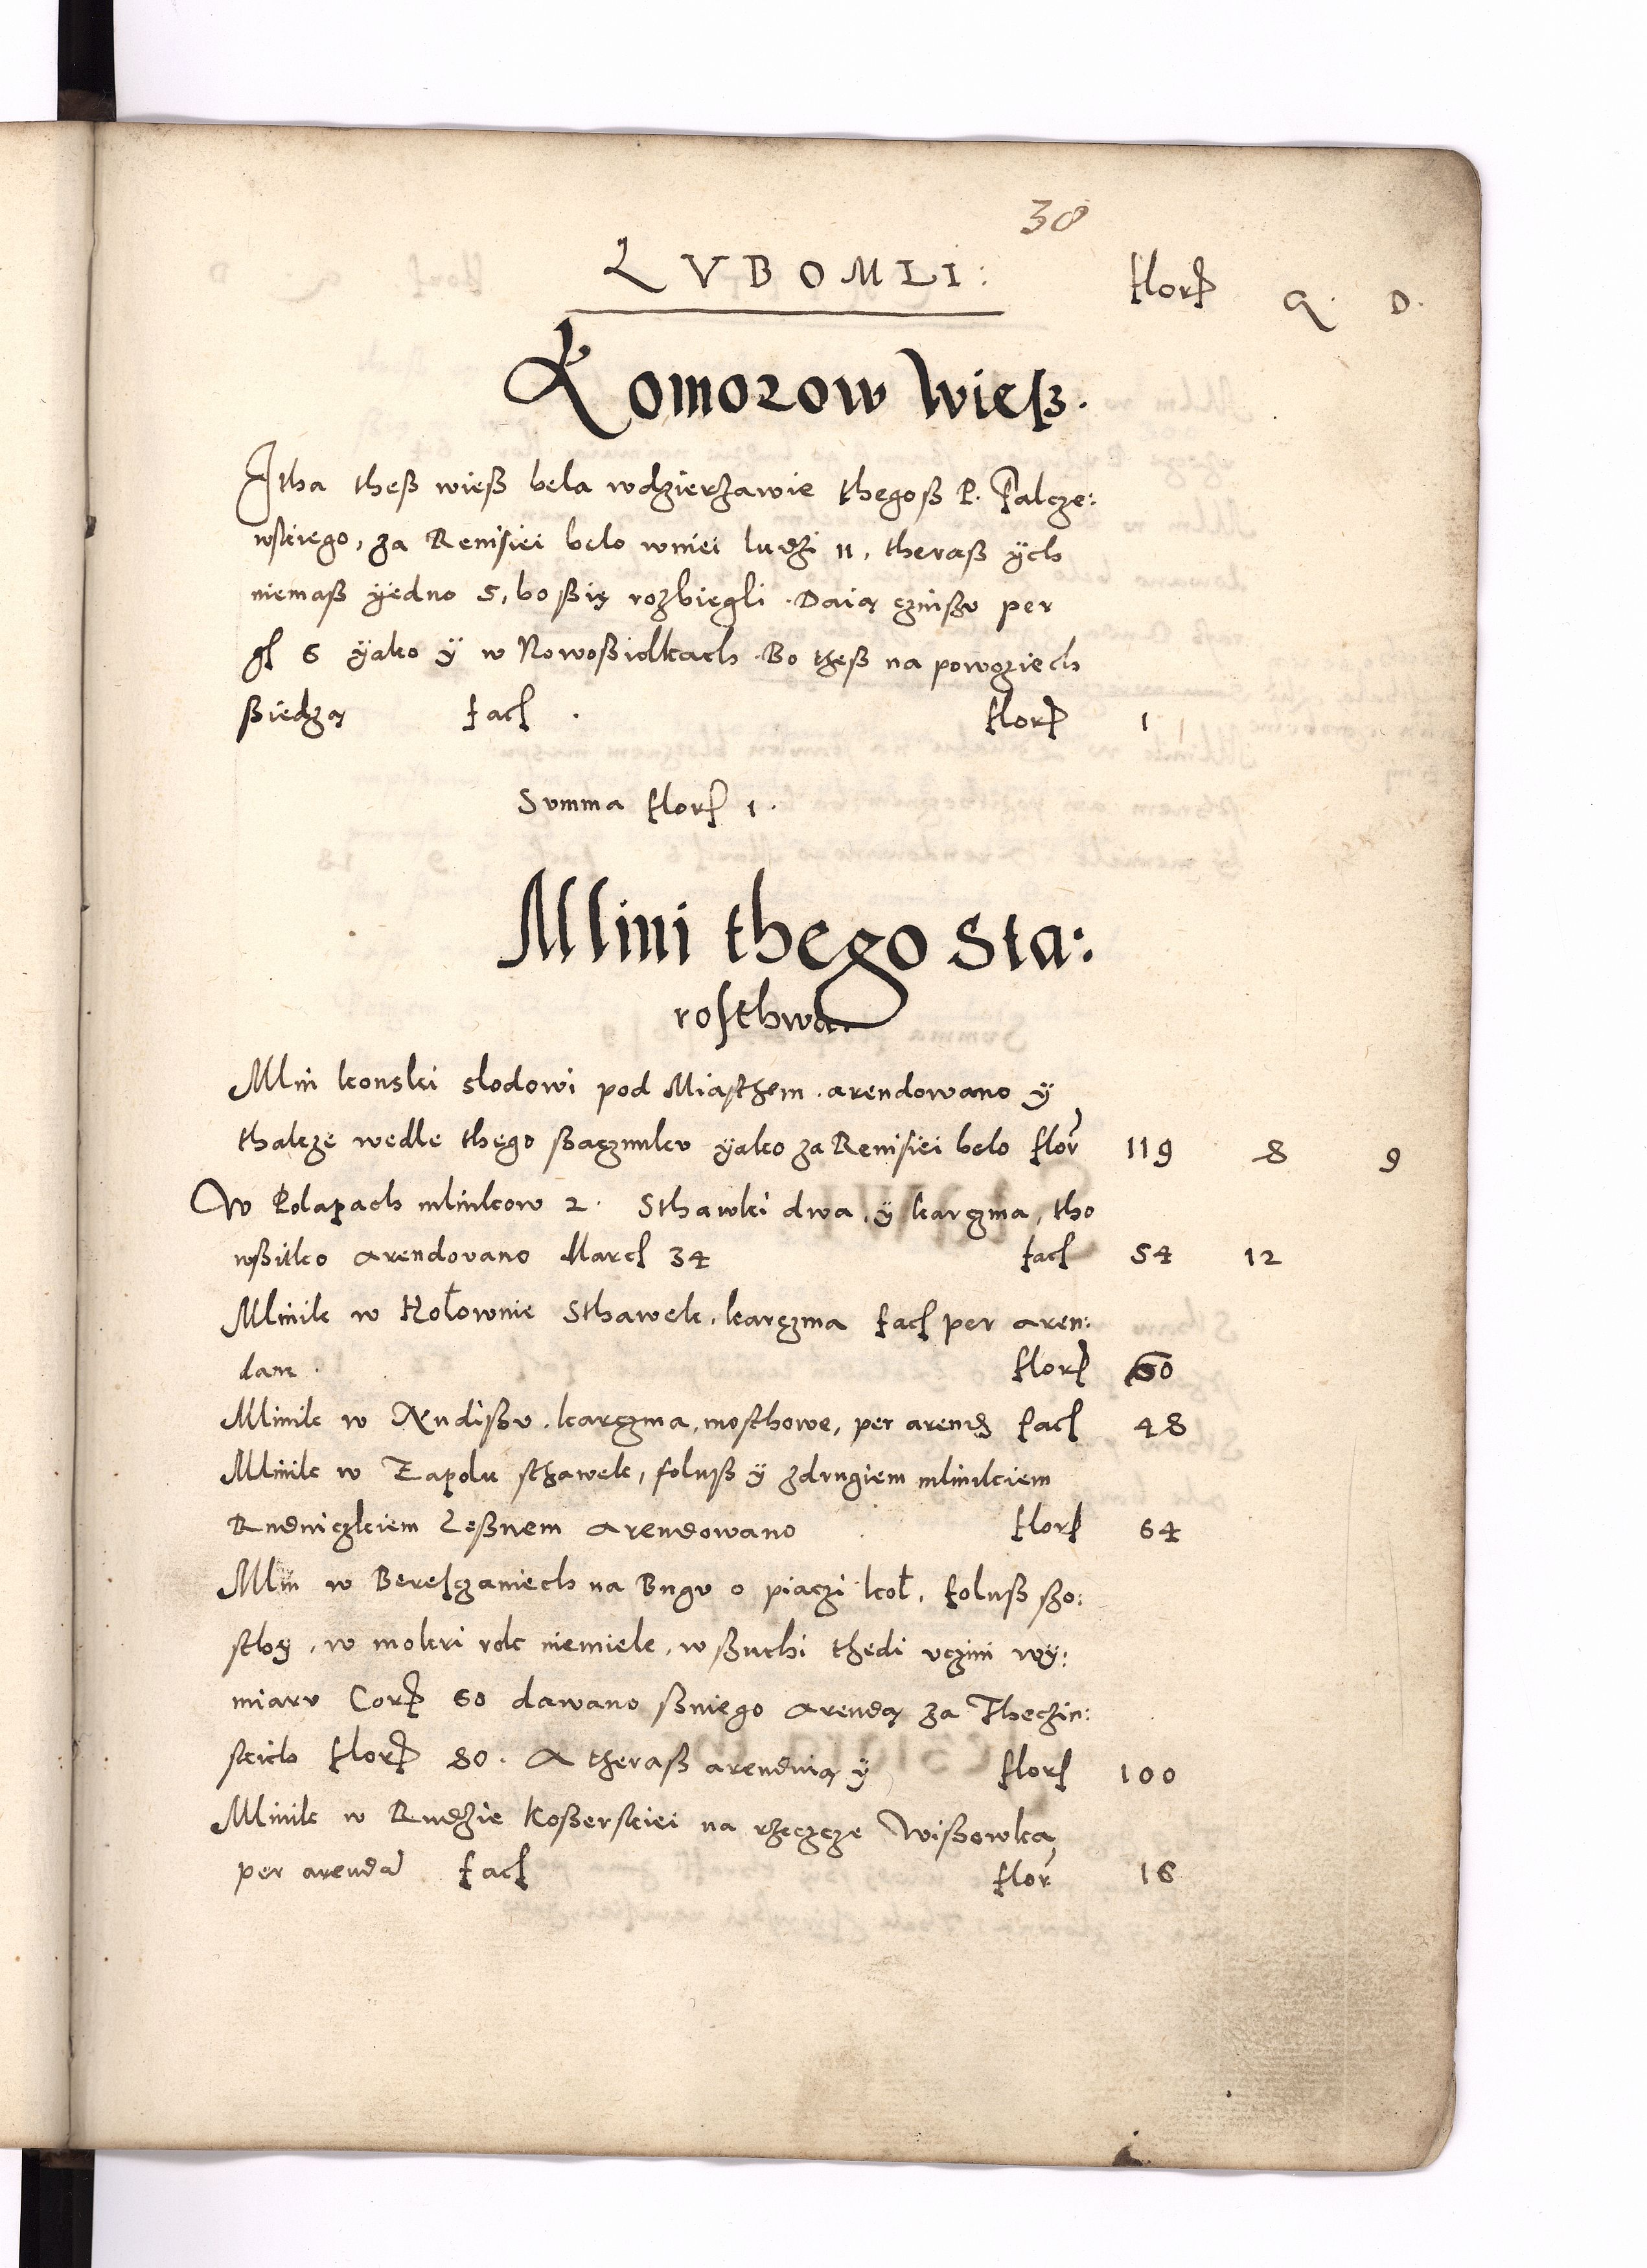 38
LVBOMLI: flor[um] G. D.
Komorow wieß.
Itha theß wieß bela wdzierżawie thegoß P. Palcze:
wskiego, za Reuisiei belo wniei ludzi 11, theraß ÿch
niemaß ÿedno 5, bo ßię rozbiegli. Daią czinßu per
gł 6 ÿako ÿ w Nowoßiolkach. Bo theß na powoziech
ßiedzą facł. florł 1
Summa florł 1.
Mlini thego Sta:
rosthwa.
Mlin konski slodowi pod Miasthem. arendowano ÿ
thakze wedle thego ßaczunku ÿako za Reuisiei belo flor 119 8 9
W Polapach mlinkow 2. Sthawki dwa, ÿ karczma, tho
wßitko arendovano Marcł 34 facł 54 12
Mlinik w Hołownie Sthawek, karczma facł per aren:
dam. florł 60
Mlinik w Nudißu. karczma, mosthowe, per arend facł 48
Mlinik w Zapolu sthawek, foluß ÿ zdrugiem mlinikiem
Rudniczkiem Leßnem arendowano florł 64
Mlin w Bereszaniech na Bugu o piaczi koł, foluß szo:
sthÿ, w mokri rok niemiele, w ßuchi thedi vczini wÿ:
miaru Corł 60 dawano ßniego arendą za Theczin:
skich florł 80. A theraß arenduią ÿ florł 100
Mlinik w Rudzie Koßerskiei na rzeczcze Wißowka
per arenda facł flor 16